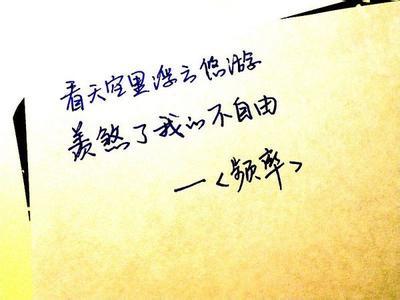 看天空里浮云悠游
羡煞了我的不自由
—<频率>